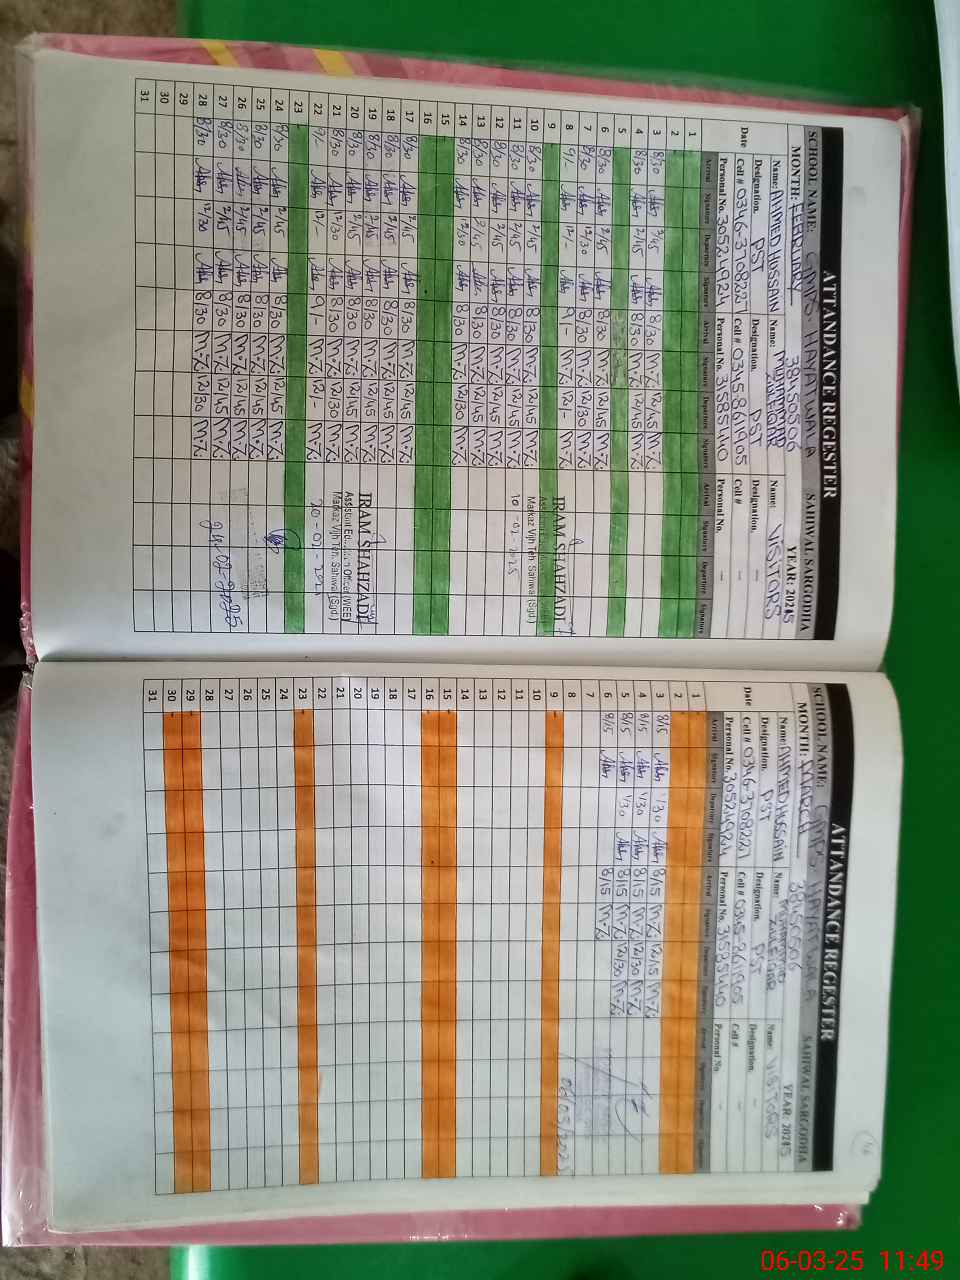 ATTANDANCE REGESTER
SCHOOL NAME: GMPS. HAYAT WALA SAHIWAL SARGODHA
MONTH: FEBRUARY 38450506 YEAR: 2025
Name: AHMED HUSSAIN Name: MUHAMMAD ZULFIQAR Name: VISITORS
Designation. PST Designation. PST Designation.
Cell # 0346-3708227 Cell # 0345-8611905 Cell # —
Date Personal No. 30521924 Personal No. 31585440 Personal No. —
Arrival Signature Departure Signature Arrival Signature Departure Signature Arrival Signature Departure Signature
1
2
3 8/30 2/45 8/30 M.Z. 12/45 M.Z.
4 8/30 2/45 8/30 M.Z. 12/45 M.Z.
5
6 8/30 2/45 8/30 M.Z. 12/45 M.Z.
7 8/30 12/30 8/30 M.Z. 12/30 M.Z.
8 9/- 12/- 9/- M.Z. 12/- M.Z.
9 IRAM SHAHZADI
10 8/30 2/45 8/30 M.Z. 12/45 M.Z. Markaz Vijh Teh. Sahiwal (Sgd)
11 8/30 2/45 8/30 M.Z. 12/45 M.Z. 10-02-2025
12 8/30 2/45 8/30 M.Z. 12/45 M.Z.
13 8/30 2/45 8/30 M.Z. 12/45 M.Z.
14 8/30 12/30 8/30 M.Z. 12/30 M.Z.
15
16
17 8/30 2/45 8/30 M.Z. 12/45 M.Z.
18 8/30 2/45 8/30 M.Z. 12/45 M.Z.
19 8/30 2/45 8/30 M.Z. 12/45 M.Z. IRAM SHAHZADI
20 8/30 2/45 8/30 M.Z. 12/45 M.Z. Assistant Education Officer (WEE)
21 8/30 12/30 8/30 M.Z. 12/30 M.Z. Markaz Vijh Teh. Sahiwal (Sgd)
22 9/- 12/- 9/- M.Z. 12/- M.Z. 20-02-202
23
24 8/30 2/45 8/30 M.Z. 12/45 M.Z.
25 8/30 2/45 8/30 M.Z. 12/45 M.Z.
26 8/30 2/45 8/30 M.Z. 12/45 M.Z.
27 8/30 2/45 8/30 M.Z. 12/45 M.Z.
28 8/30 12/30 8/30 M.Z. 12/30 M.Z. 24-02-2025
29
30
31
46
ATTANDANCE REGESTER
SCHOOL NAME: GMPS. HAYAT WALA SAHIWAL SARGODHA
MONTH: MARCH 38450506 YEAR: 2025
Name: AHMED HUSSAIN Name: MUHAMMAD ZULFIQAR Name: VISITORS
Designation. PST Designation. PST Designation. —
Cell # 0346-3708227 Cell # 0345-8611905 Cell # —
Date Personal No. 30521924 Personal No. 31585440 Personal No. —
Arrival Signature Departure Signature Arrival Signature Departure Signature Arrival Signature Departure Signature
1
2
3 8/15 1/30 8/15 M.Z. 12/15 M.Z.
4 8/15 1/30 8/15 M.Z. 12/30 M.Z.
5 8/15 1/30 8/15 M.Z. 12/30 M.Z.
6 8/15 8/15 M.Z.
7
8 06/03/2025
9
10
11
12
13
14
15
16
17
18
19
20
21
22
23
24
25
26
27
28
29
30
31
06-03-25 11:49